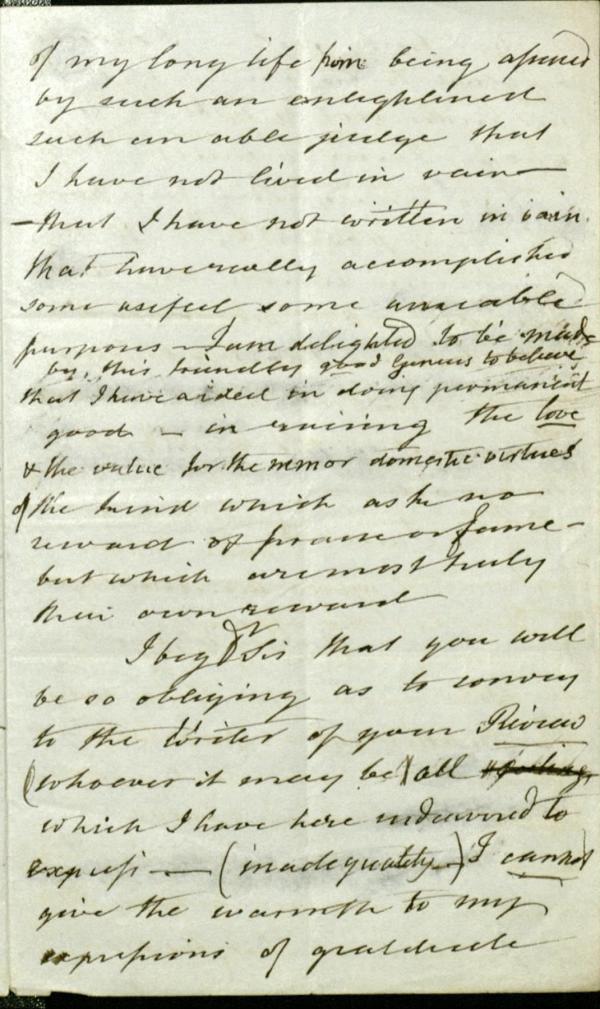 of my long life from being assured
by such an enlightened
such an able judge that
I have not lived in vain —
— that I have not written in vain.
that have really accomplished
some useful some amiable
purposes — I am delighted to be made
by this friendly good Genius to believe
that I have aided in doing permanent
good — in raising the love
& the value for the minor domestic virtues
of the kind which ask no
reward of praise or fame —
but which are most truly
their own reward
I beg Dr Sir that you will
be so obliging as to convey
to the Writer of your Review
(whoever it may be) all
which I have here endeavored to
express — (inadequately —) I cannot
give the warmth to my
expressions of gratitude